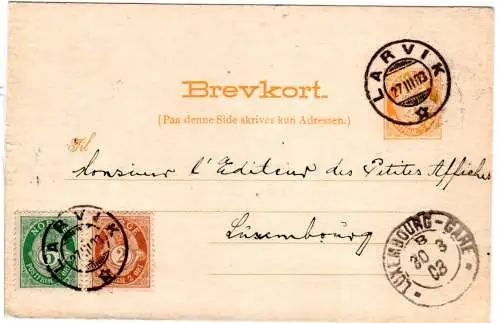 LARVIK
27 III 03
Brevkort.
(Paa denne Side skrives kun Adressen.)
Til
Monsieur l'Editeur des Petites Affiches
Luxembourg
LUXEMBOURG-GARE
8
30 3
03
LARVIK
NORGE
5
POSTFRIM
2